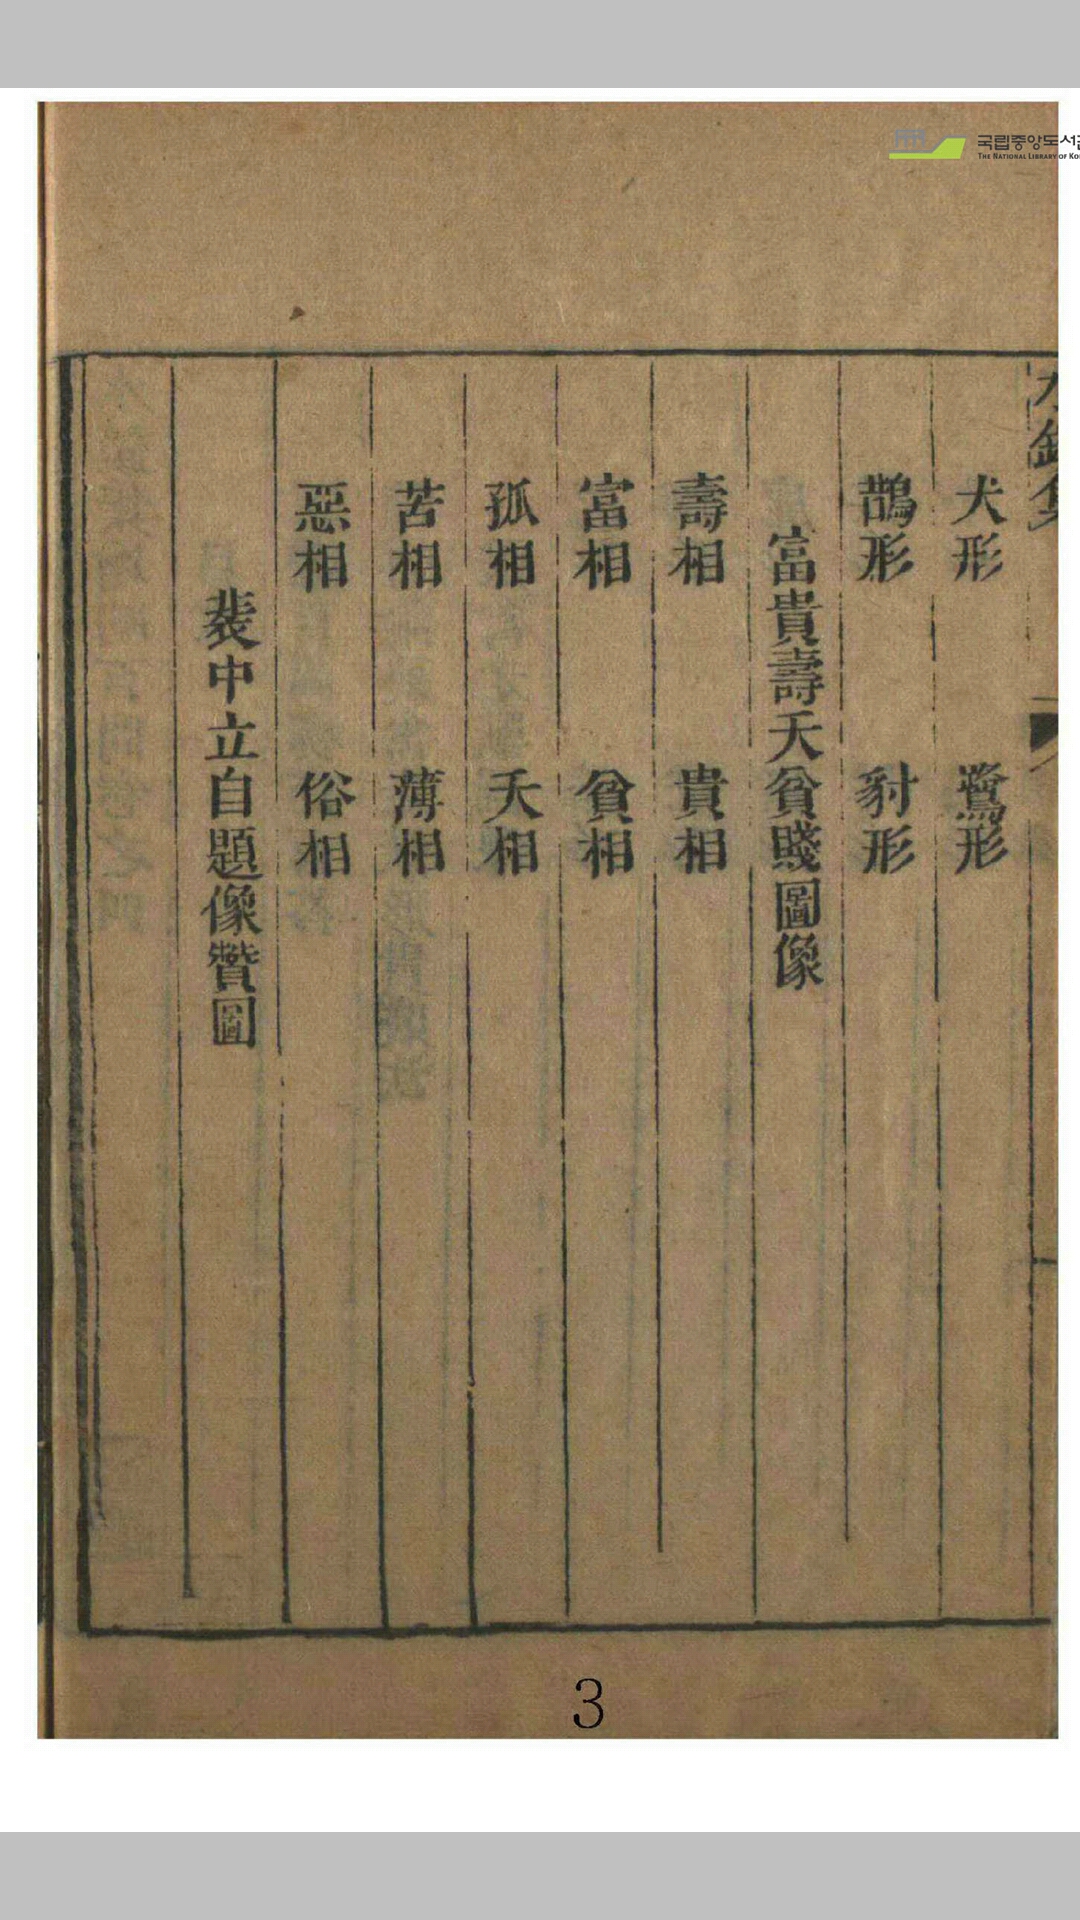 국립중앙도서관
THE NATIONAL LIBRARY OF KO
犬形 鷺形
鵲形 豺形
富貴壽夭貧賤圖像
壽相 貴相
富相 貧相
孤相 夭相
苦相 薄相
惡相 俗相
裴中立自題像贊圖
3